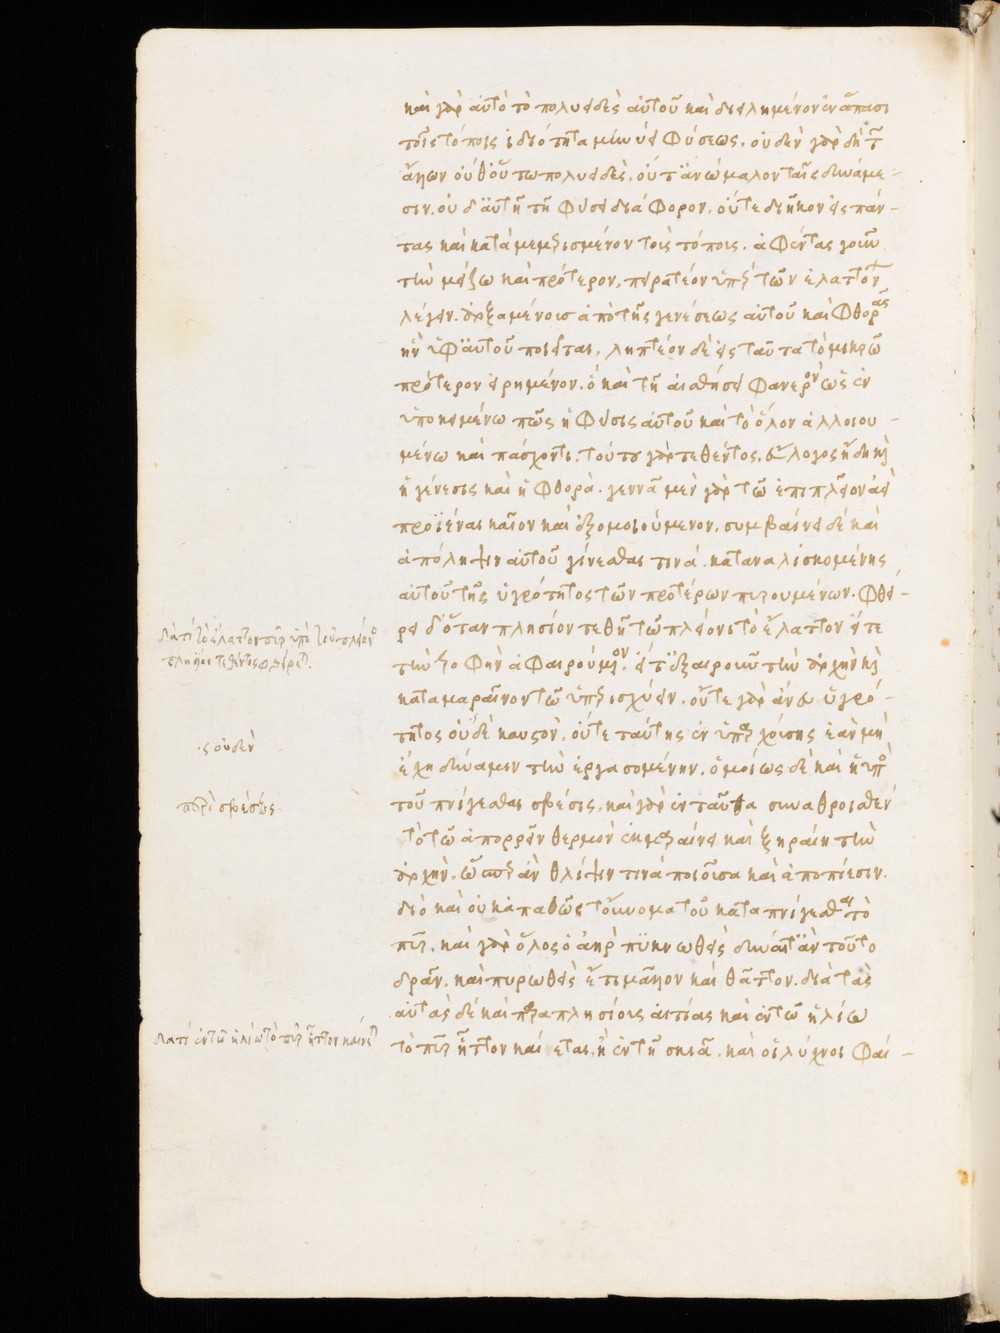 καὶ γὰρ αὐτὸ τὸ πολυειδὲς αὐτοῦ καὶ διειλημένον ἐν ἅπασι
τοῖς τόποις ἰδιότητα μηνύει φύσεως. οὐδὲν γὰρ δὴ τ
ἄλλων οὔθ' οὕτω πολυειδὲς. οὔτ' ἀνώμαλον ταῖς δυνάμε-
σιν. οὐδ' αὐτῆ τῆ φύσει διάφορον. οὔτε διῆκον εἰς πάν-
τας καὶ κατὰ μεμερισμένον τοῖς τόποις. ἀφέντας γοῦν
τὴν μείζω καὶ πρότερον. πειρατέον ὑπὲρ τῶν ἐλαττόν
λέγειν. ἀρξαμένοις ἀπὸ τῆς γενέσεως αὐτοῦ καὶ φθορᾶς
ἣν ὑφ' αὑτοῦ ποιεῖται. ληπτέον δὲ εἰς ταῦτα τὸ μικρῶ
πρότερον εἰρημένον. ὃ καὶ τῆ αἰσθήσει φανερὸν ὡς ἐν
ὑποκειμένω πῶς ἡ φύσις αὐτοῦ καὶ τὸ ὅλον ἀλλοιου-
μένω καὶ πάσχοντι. τούτου γὰρ τεθέντος. εὔλογος ἤδη καὶ
ἡ γένεσις καὶ ἡ φθορὰ. γεννᾶ μὲν γὰρ τῶ ἐπιπλέον ἀεὶ
προϊέναι καῖον καὶ ἐξομοιούμενον. συμβαίνει δὲ καὶ
ἀπόληψιν αὐτοῦ γίνεσθαι τινά. καταναλισκομένης
αὐτοῦ τῆς ὑγρότητος τῶν προτέρων πυρουμένων. φθεί-
ρει δ' ὅταν πλησίον τεθῆ τῶ πλέονι τὸ ἔλαττον εἴτε
τὴν τροφὴν ἀφαιρούμενον. εἴτ' ἐξαιροῦν τὴν ἀρχὴν καὶ
καταμαραῖνον τῶ ὑπερισχύειν. οὔτε γὰρ ἄνευ ὑγρό-
τητος οὐδὲ καυστὸν. οὔτε ταύτης ἐν ὑπαρχούσης ἐὰν μὴ
ἔχη δύναμιν τὴν ἐργασομένην. ὁμοίως δὲ καὶ ἡ ὑπὸ
τοῦ πνίγεσθαι σβέσις. καὶ γὰρ ἐνταῦθα συναθροισθὲν
τὸ τῶ ἀπορρεῖν θερμὸν ἐκμαραίνει καὶ ξηραίνη τὴν
ἀρχὴν. ὥσπερ ἂν θλίψιν τινὰ ποιοῦσα καὶ ἀποπίεσιν.
διὸ καὶ οὐκ ἀπαθῶς τοὔνομα τοῦ καταπνίγεσθαι τὸ
πῦρ. καὶ γὰρ ὅλος ὁ ἀὴρ πυκνωθεὶς δύναιτ' ἂν τοῦτο
δρᾶν. καὶ πυρωθεὶς ἔτι μᾶλλον καὶ θᾶττον. διὰ τὰς
αὐτὰς δὲ καὶ παραπλησίους αἰτίας καὶ ἐν τῶ ἡλίω
τὸ πῦρ ἧττον καίεται. ἢ ἐν τῆ σκιᾶ. καὶ οἱ λύχνοι φαί-
διατί τὸ ἔλαττον πῦρ ὑπὸ τοῦ πλέονος
πλησίον τεθέντος φθείρεται.
ς οὐδὲν
περὶ σβέσεως
διατί ἐν τῶ ἡλίω τὸ πῦρ ἧττον καίεται